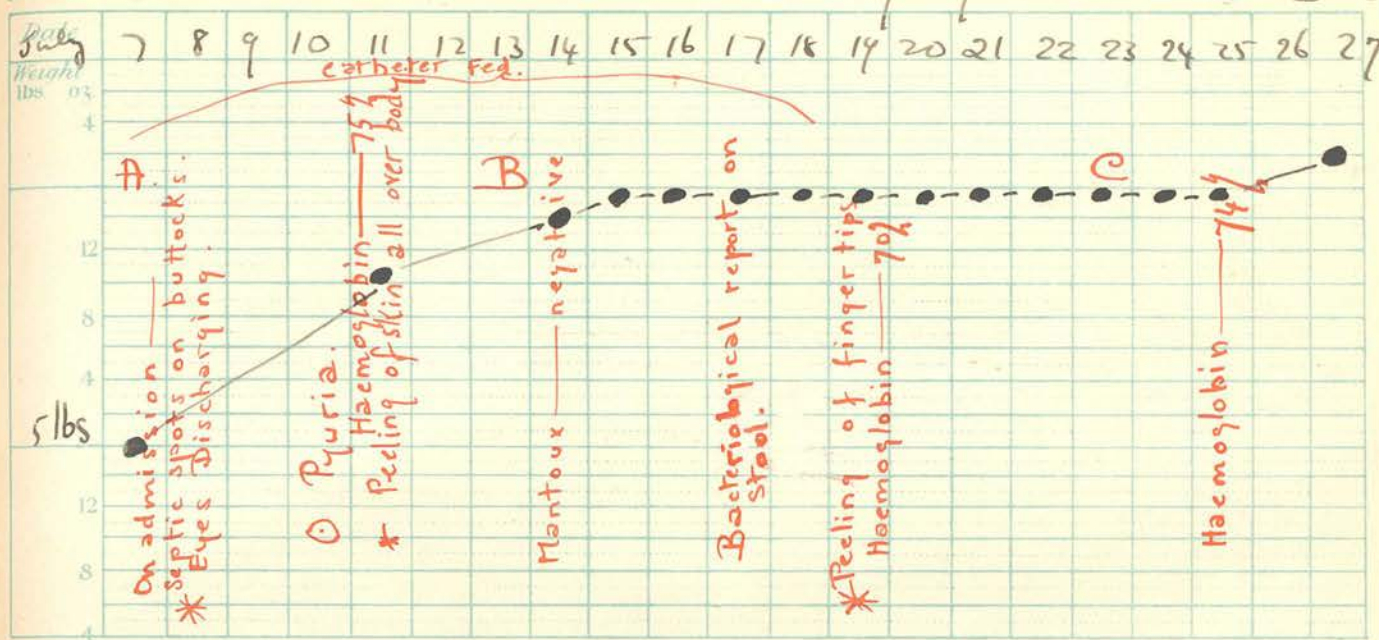 Date
July 7 8 9 10 11 12 13 14 15 16 17 18 19 20 21 22 23 24 25 26 27
Weight
lbs. oz.
catheter fed.
4
A
B
C
12
8
4
5 lbs
12
8
4
On admission —
septic spots on buttocks.
* Eyes Discharging.
⊙ Pyuria.
Haemoglobin — 75%
* Peeling of skin all over body
Mantoux — negative
Bacteriological report on
stool.
* Peeling of finger tips
Haemoglobin — 70%
Haemoglobin — 74%